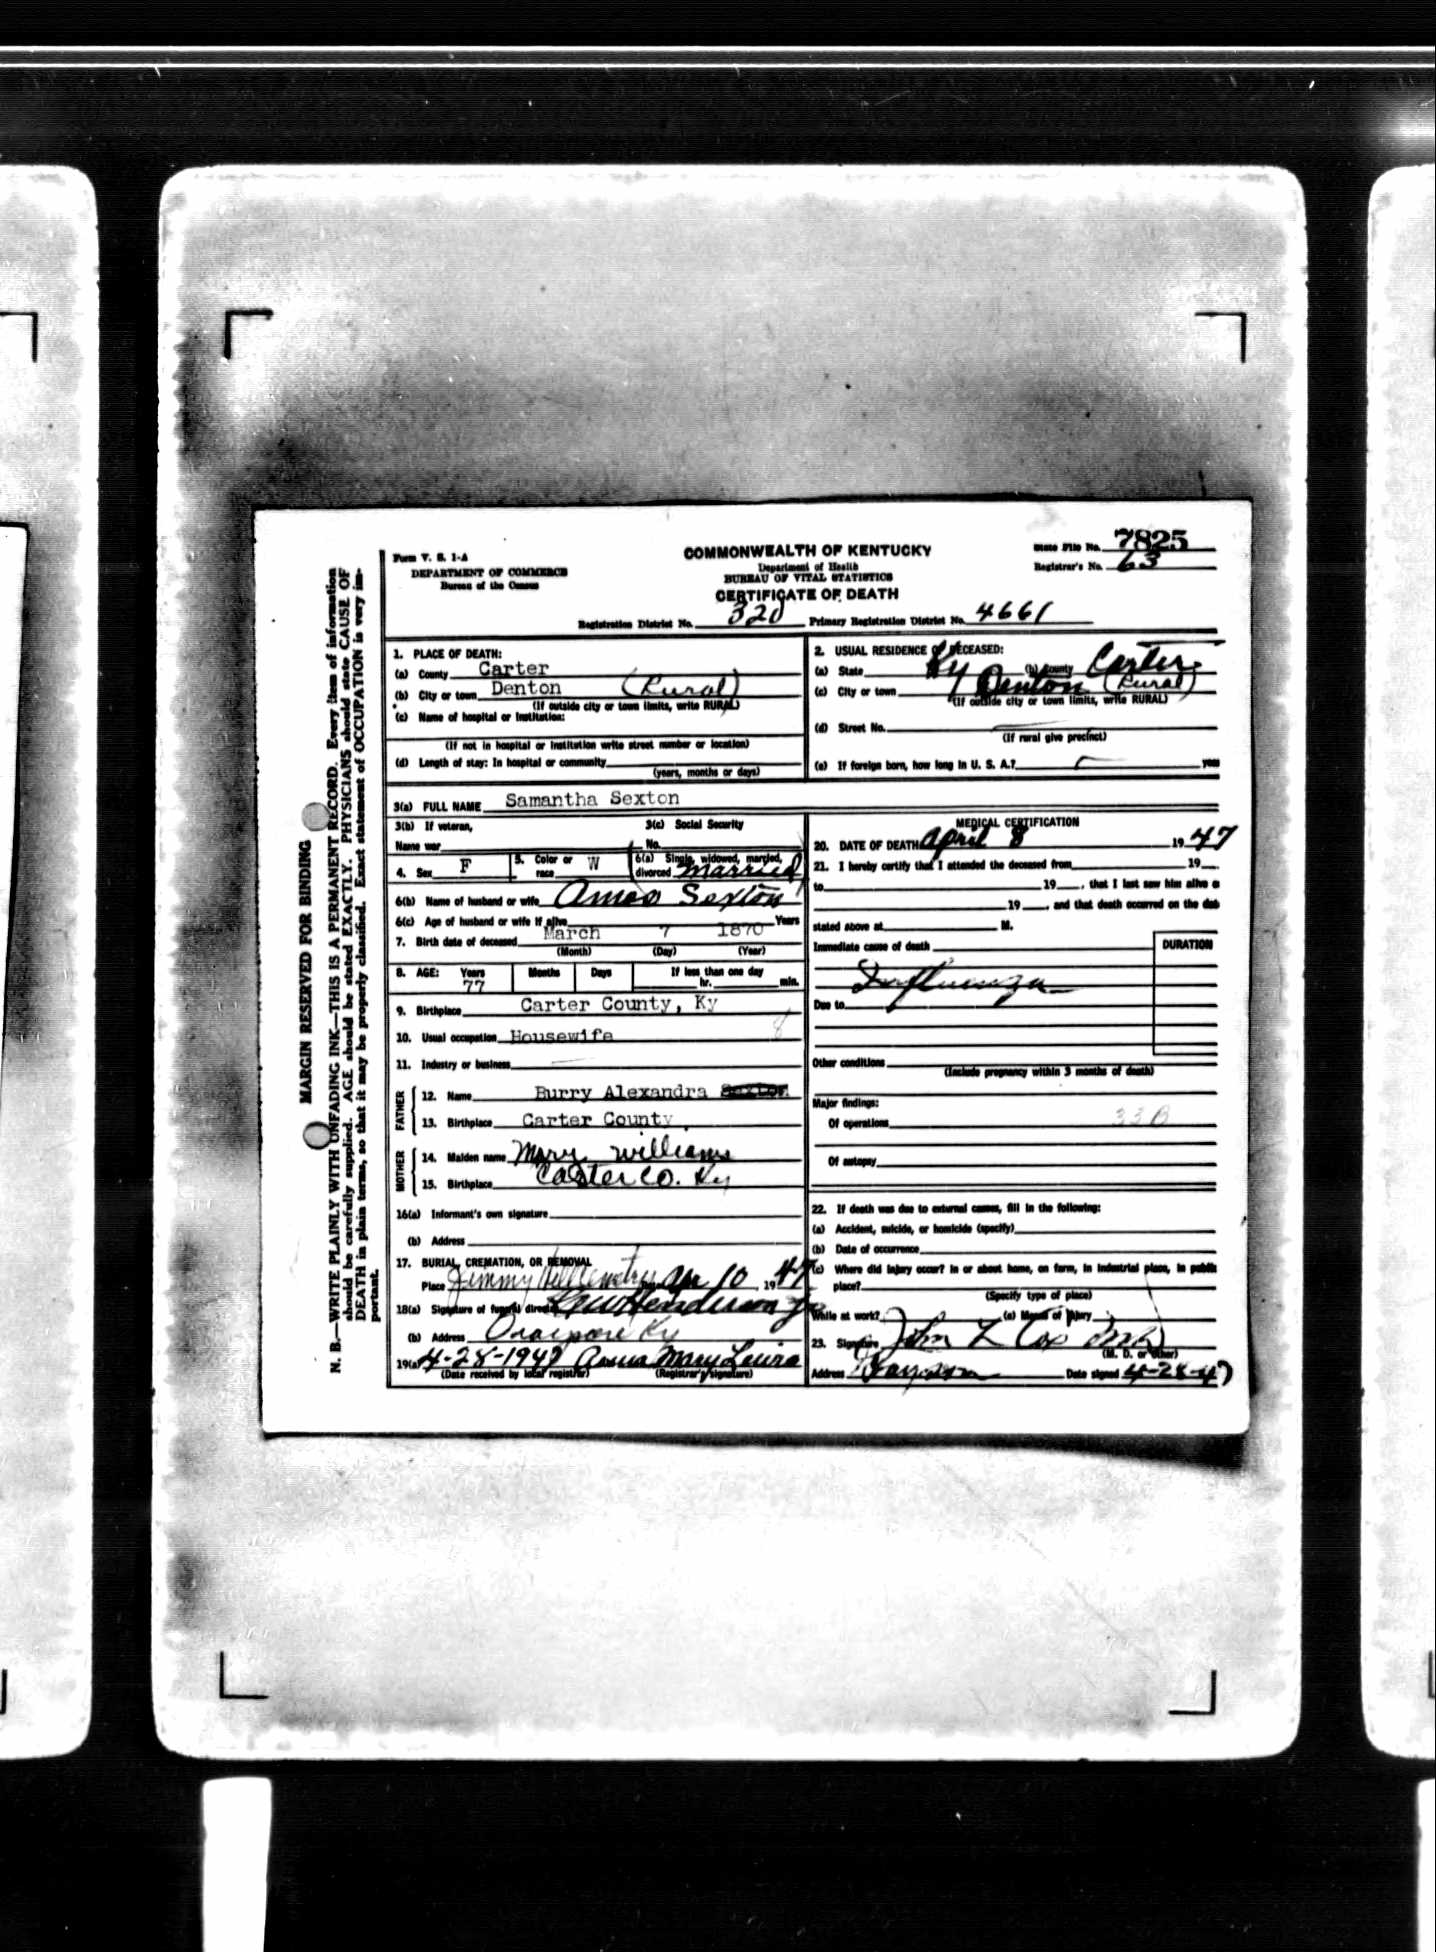 Form V. S. 1-A
DEPARTMENT OF COMMERCE
Bureau of the Census
COMMONWEALTH OF KENTUCKY
Department of Health
BUREAU OF VITAL STATISTICS
CERTIFICATE OF DEATH
State File No. 7825
Registrar's No. 63
Registration District No. 320 Primary Registration District No. 4661
MARGIN RESERVED FOR BINDING
N. B.—WRITE PLAINLY WITH UNFADING INK—THIS IS A PERMANENT RECORD. Every item of information
should be carefully supplied. AGE should be stated EXACTLY. PHYSICIANS should state CAUSE OF
DEATH in plain terms, so that it may be properly classified. Exact statement of OCCUPATION is very im-
portant.
1. PLACE OF DEATH:
(a) County Carter
(b) City or town Denton (Rural)
(If outside city or town limits, write RURAL)
(c) Name of hospital or institution:
(If not in hospital or institution write street number or location)
(d) Length of stay: In hospital or community
(years, months or days)
2. USUAL RESIDENCE OF DECEASED:
(a) State Ky (b) County Carter
(c) City or town Denton (Rural)
(If outside city or town limits, write RURAL)
(d) Street No.
(If rural give precinct)
(e) If foreign born, how long in U. S. A.? years
3(a) FULL NAME Samantha Sexton
3(b) If veteran,
Name war
3(c) Social Security
No.
4. Sex F 5. Color or race W 6(a) Single, widowed, married, divorced married
6(b) Name of husband or wife Amos Sexton
6(c) Age of husband or wife if alive Years
7. Birth date of deceased March 7 1870
(Month) (Day) (Year)
8. AGE: Years Months Days If less than one day
77 hr. min.
9. Birthplace Carter County, Ky
10. Usual occupation Housewife
11. Industry or business
FATHER
12. Name Burry Alexandra
13. Birthplace Carter County,
MOTHER
14. Maiden name Mary Williams
15. Birthplace Carter Co. Ky
16(a) Informant's own signature
(b) Address
17. BURIAL, CREMATION, OR REMOVAL
Place Jimmy Hill Cemetry Date Apr 10, 1947
18(a) Signature of funeral director Henderson Jr
(b) Address Ky
19(a) 4-28-1947 Mary
(Date received by local registrar) (Registrar's signature)
MEDICAL CERTIFICATION
20. DATE OF DEATH April 8 1947
21. I hereby certify that I attended the deceased from 19
to 19, that I last saw him alive o
19, and that death occurred on the dat
stated above at M.
Immediate cause of death
DURATION
Influenza
Due to
Other conditions
(Include pregnancy within 3 months of death)
Major findings:
Of operations 33B
Of autopsy
22. If death was due to external causes, fill in the following:
(a) Accident, suicide, or homicide (specify)
(b) Date of occurrence
(c) Where did injury occur? In or about home, on farm, in industrial place, in public
place?
(Specify type of place)
While at work? (e) Means of injury
23. Signature John L Cox
(M. D. or other)
Address Grayson Date signed 4-28-47